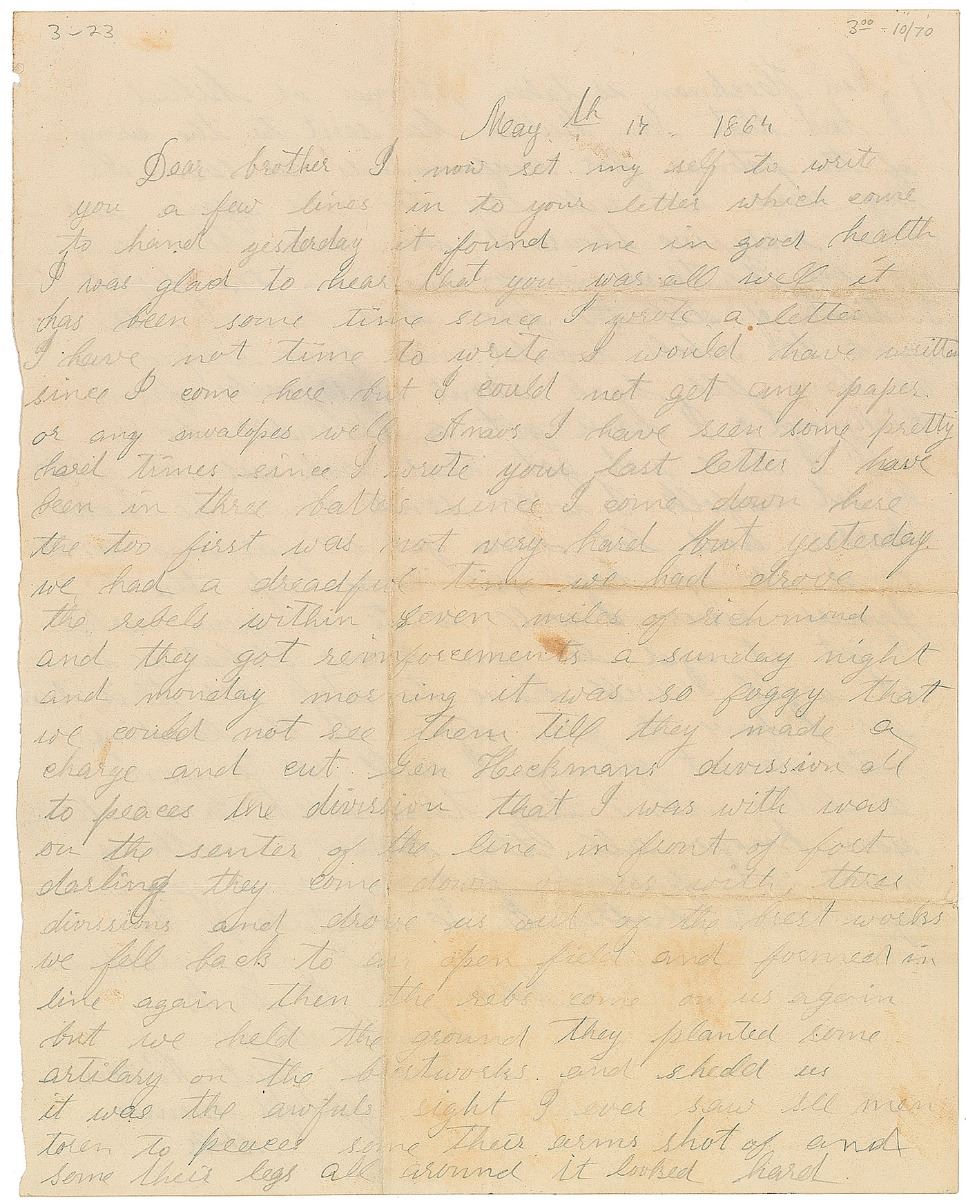 3-23
3⁰⁰ - 10/70
May th 17 1864
Dear brother I now set my self to write
you a few lines in to your letter which come
to hand yesterday it found me in good health
I was glad to hear that you was all well it
has been some time since I wrote a letter
I have not time to write I would have written
since I come here but I could not get any paper
or any invalopes well Amos I have seen some pretty
hard times since I wrote your last letter I have
been in three battles since I come down here
the too first was not very hard but yesterday
we had a dreadful time we had drove
the rebels within seven miles of richmond
and they got reinforcements a sunday night
and monday morning it was so foggy that
we could not see them till they made a
charge and cut Gen Heckmans division all
to peaces the division that I was with was
on the senter of the line in front of fort
darling they come down on us with three
divisions and drove us out of the brest works
we fell back to an open field and formed in
line again then the rebs come on us again
but we held the ground they planted some
artilary on the brestworks and shedd us
it was the awfuls sight I ever saw see men
toren to peaces some their arms shot of and
some their legs all around it looked hard